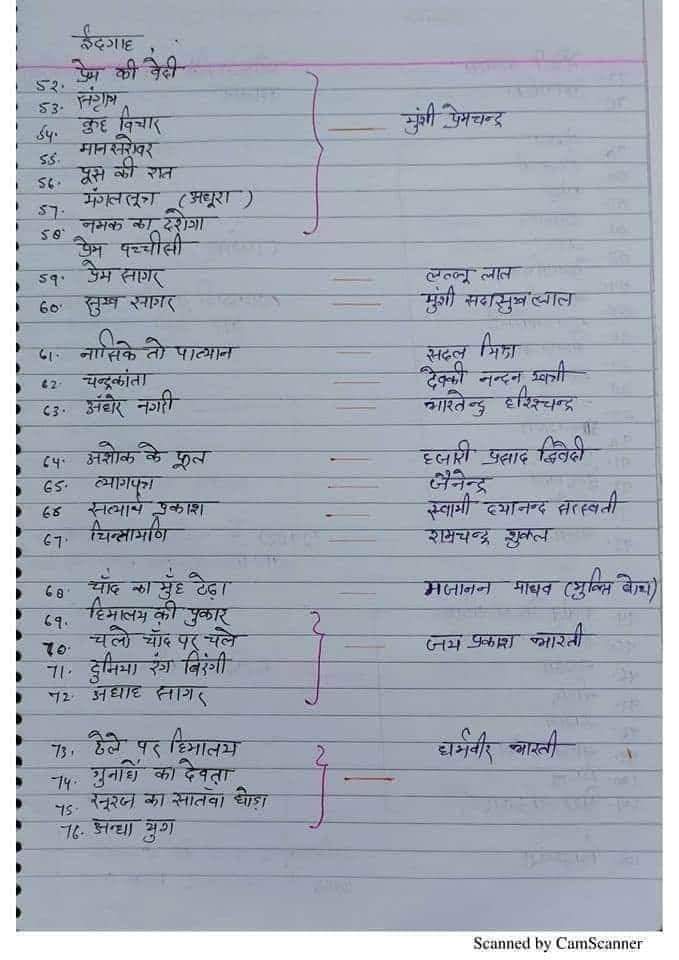 ईदगाह,
52. प्रेम की वेदी
53. संग्राम
54. कुछ विचार — मुंशी प्रेमचन्द्र
55. मानसरोवर
56. पूस की रात
57. मंगलसूत्र (अधूरा)
58. नमक का दरोगा
प्रेम पच्चीसी
59. प्रेम सागर — लल्लू लाल
60. सुख सागर — मुंशी सदासुख लाल
61. नासिके तो पाख्यान — सदल मिश्र
62. चन्द्रकांता — देवकी नन्दन खत्री
63. अंधेर नगरी — भारतेन्दु हरिश्चन्द्र
64. अशोक के फूल — हजारी प्रसाद द्विवेदी
65. त्यागपत्र — जैनेन्द्र
66 सत्यार्थ प्रकाश — स्वामी दयानन्द सरस्वती
67. चिन्तामणि — रामचन्द्र शुक्ल
68. चाँद का मुँह टेढ़ा — गजानन माधव (मुक्ति बोध)
69. हिमालय की पुकार
70. चलो चाँद पर चले — जय प्रकाश भारती
71. दुनिया रंग बिरंगी
72. अथाह सागर
73. ठेले पर हिमालय — धर्मवीर भारती
74. गुनाहों का देवता
75. सूरज का सातवाँ घोड़ा
76. अन्धा युग
Scanned by CamScanner